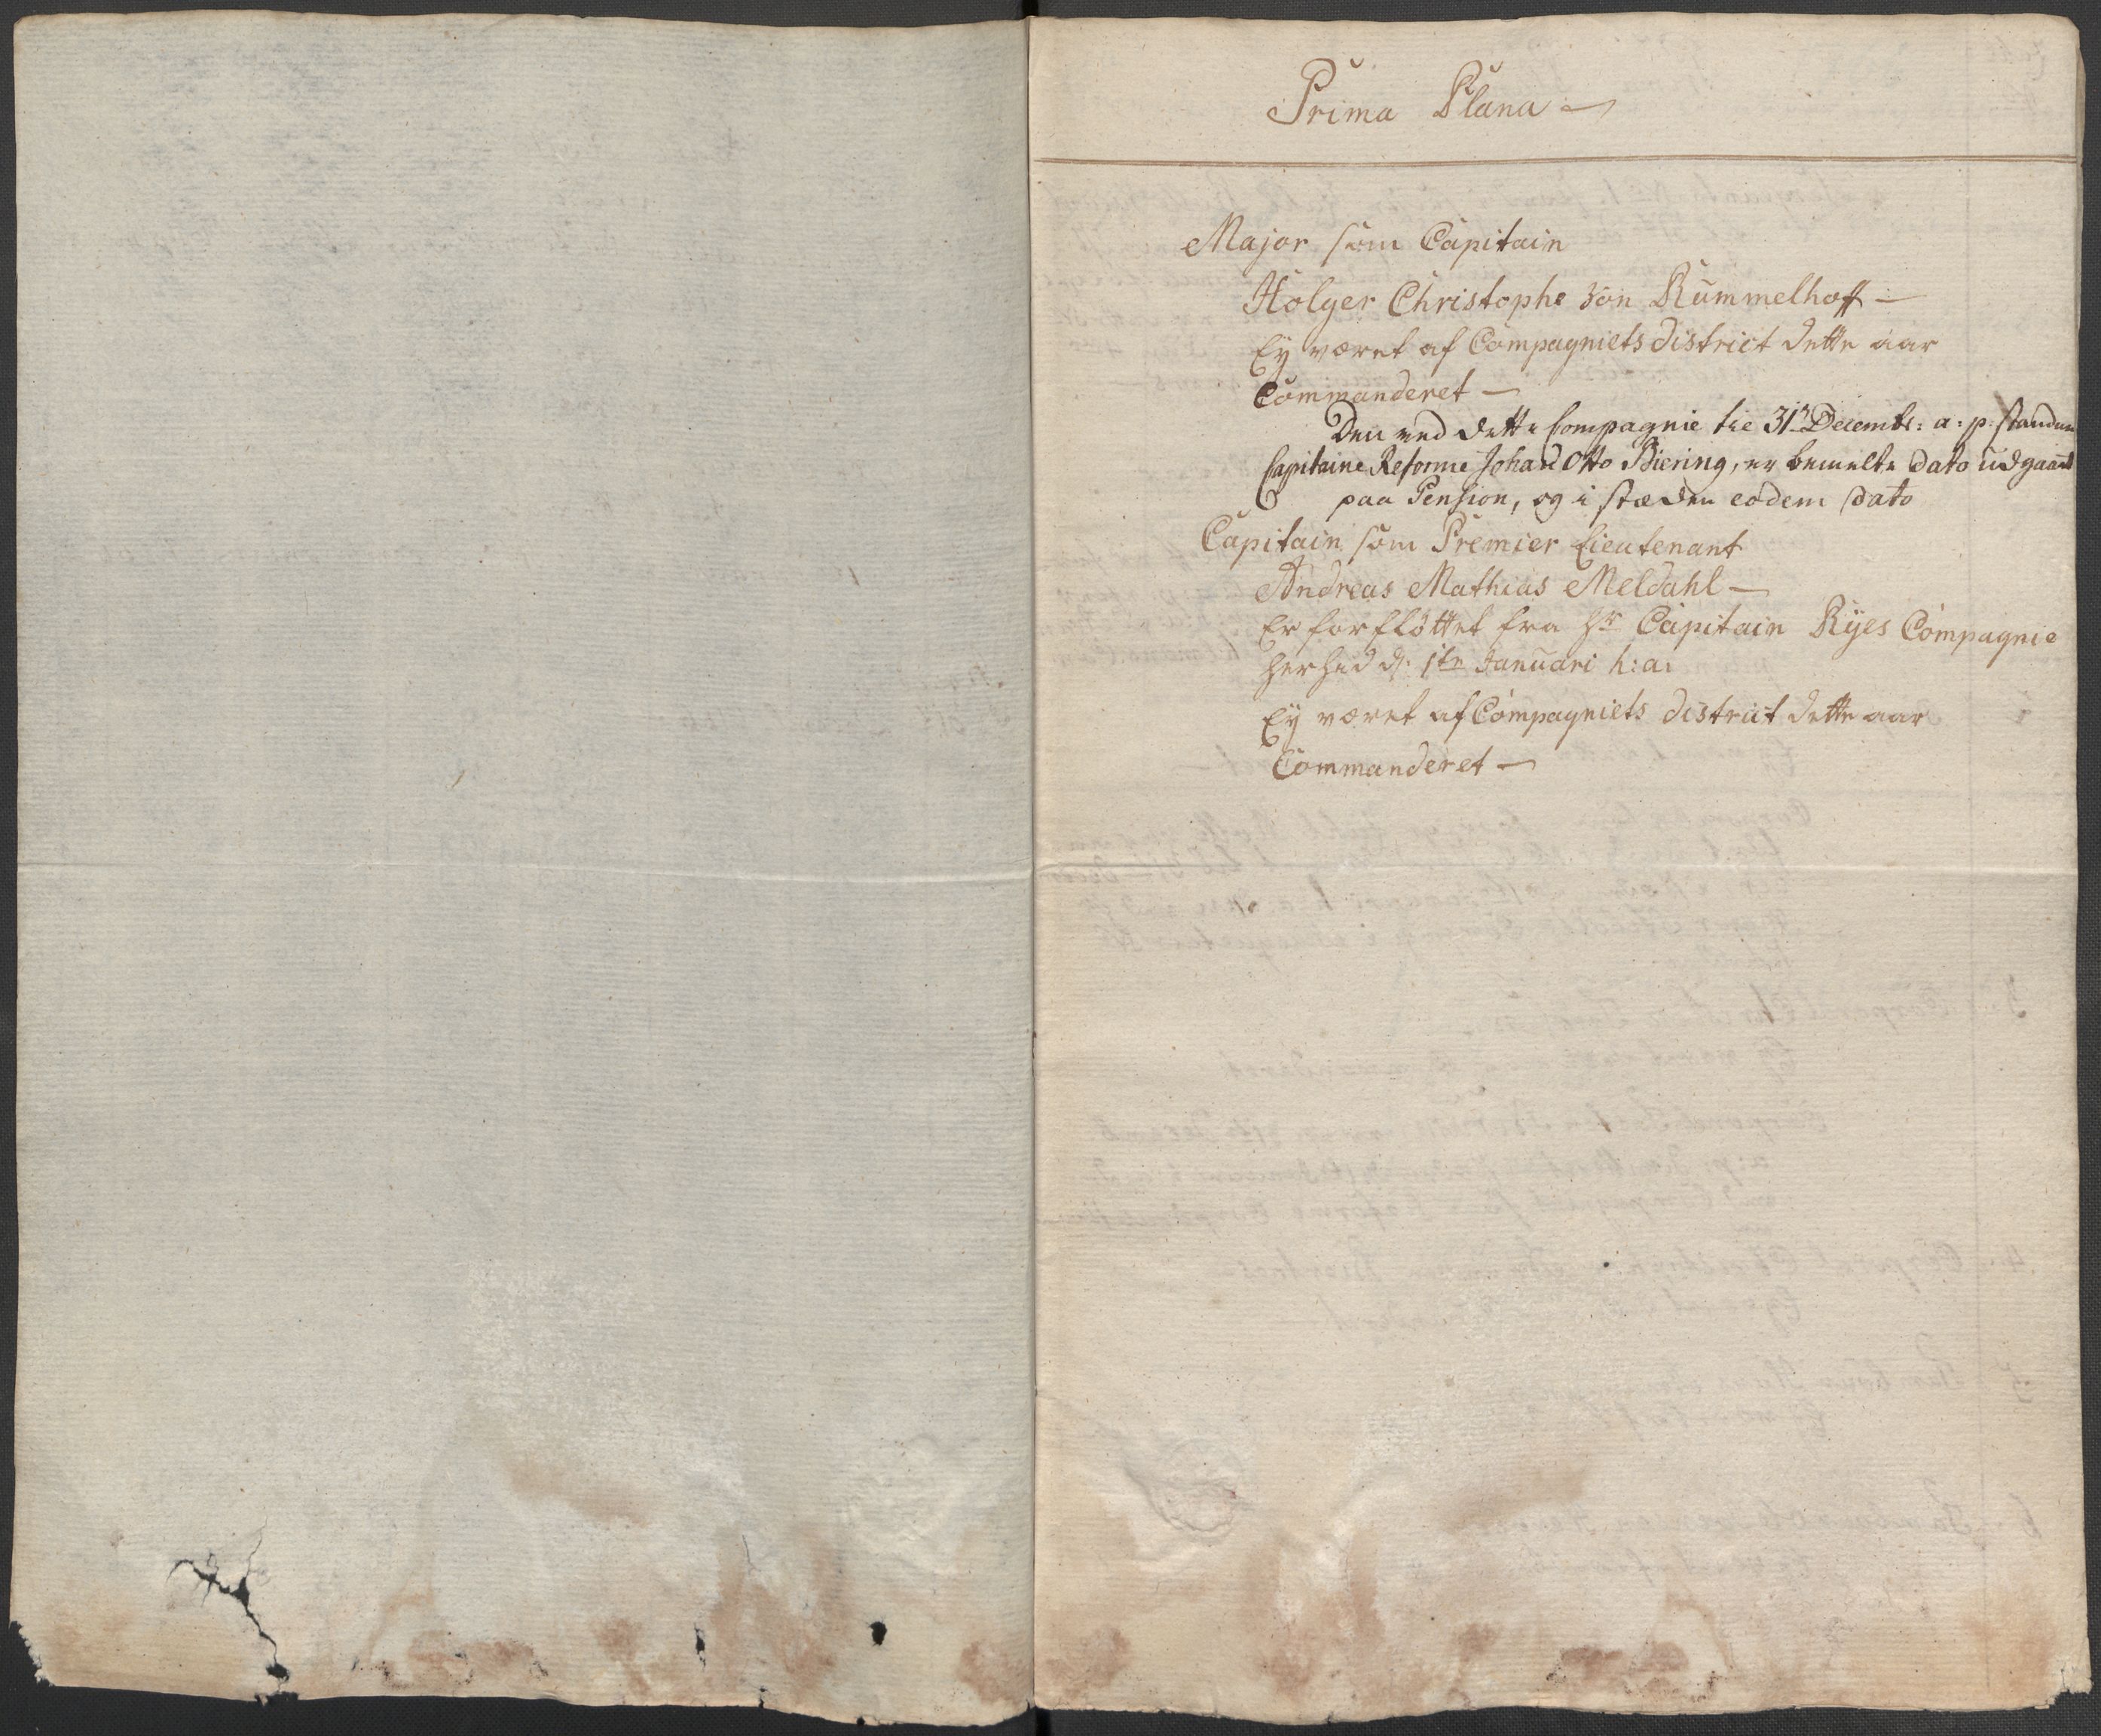 Prima Plana
Major som Capitain
Holger Christophe von Rummelhoff
Ey været af Compagniets district dette aar
Commanderet
Den ved dette Compagnie til 31te Decembr: a: p: standne
Capitaine Reformé Johan Otto Biering, er bemelte dato udgaaet
paa Pension, og i stæden eodem dato
Capitain som Premier Lieutenant
Andreas Mathias Meldahl
Er forfløttet fra Hr Capitain Ryes Compagnie
herhid d: 1te Januari h: a:
Ey været af Compagniets district dette aar
Commanderet